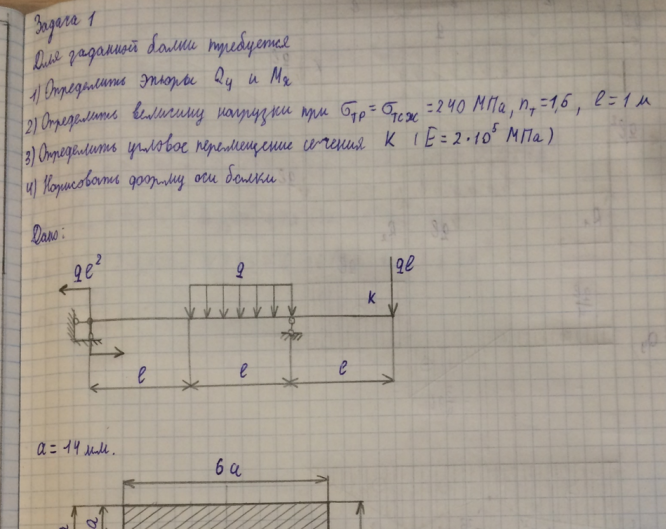 Задача 1
Для заданной балки требуется
1) Определить эпюры Qy и Mx
2) Определить величину нагрузки при σтр = σтсж = 240 МПа, nт = 1,6, l = 1 м
3) Определить угловое перемещение сечения K (E = 2·10⁵ МПа)
4) Нарисовать форму оси балки
Дано:
ql²
q
ql
K
l
l
l
a = 14 мм.
6a
a
a